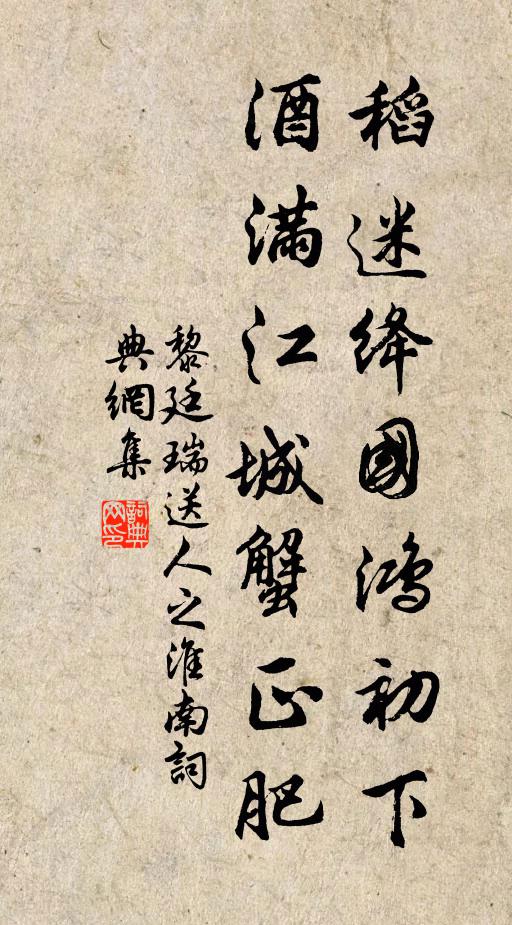 稻迷绛國鴻初下
酒滿江城蟹正肥
黎廷瑞送人之淮南詞
典網集
詞典網印